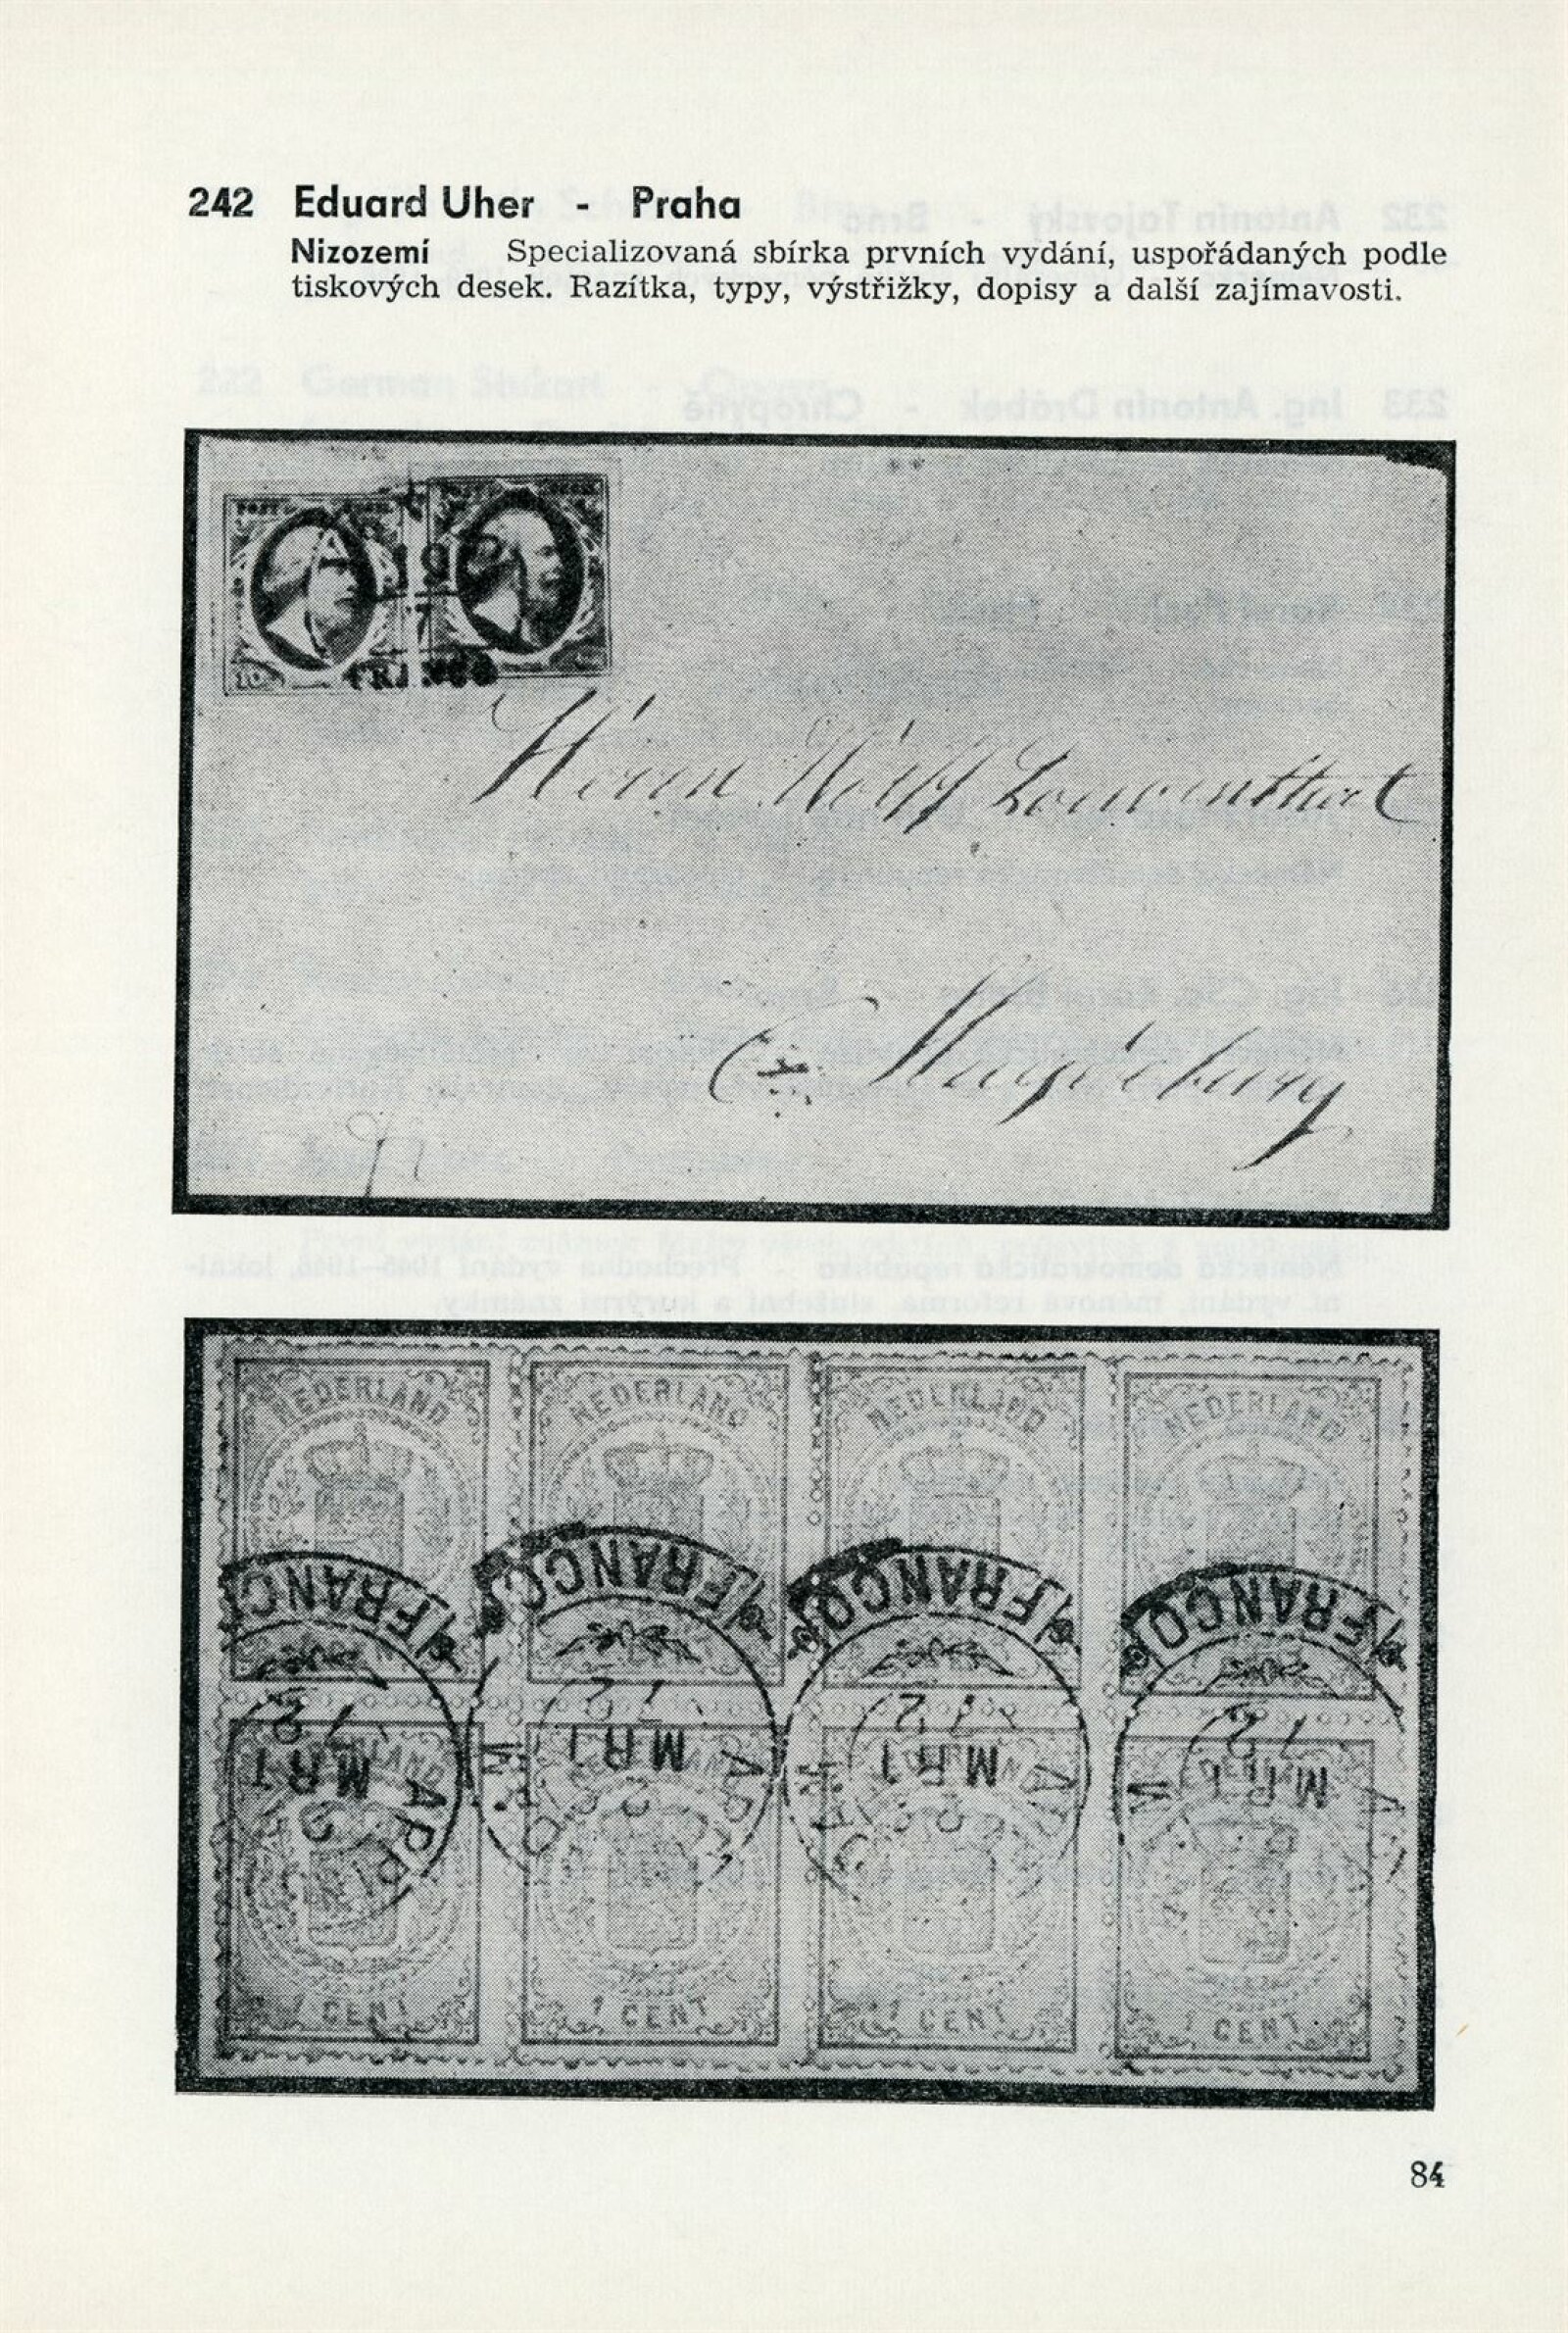 242 Eduard Uher - Praha
Nizozemí Specializovaná sbírka prvních vydání, uspořádaných podle
tiskových desek. Razítka, typy, výstřižky, dopisy a další zajímavosti.
POST
10
FRANCO
Herrn Wolff
Magdeburg
NEDERLAND NEDERLAND NEDERLAND NEDERLAND
FRANCO FRANCO FRANCO FRANCO
MRT MRT MRT MRT
1 CENT 1 CENT 1 CENT 1 CENT
84